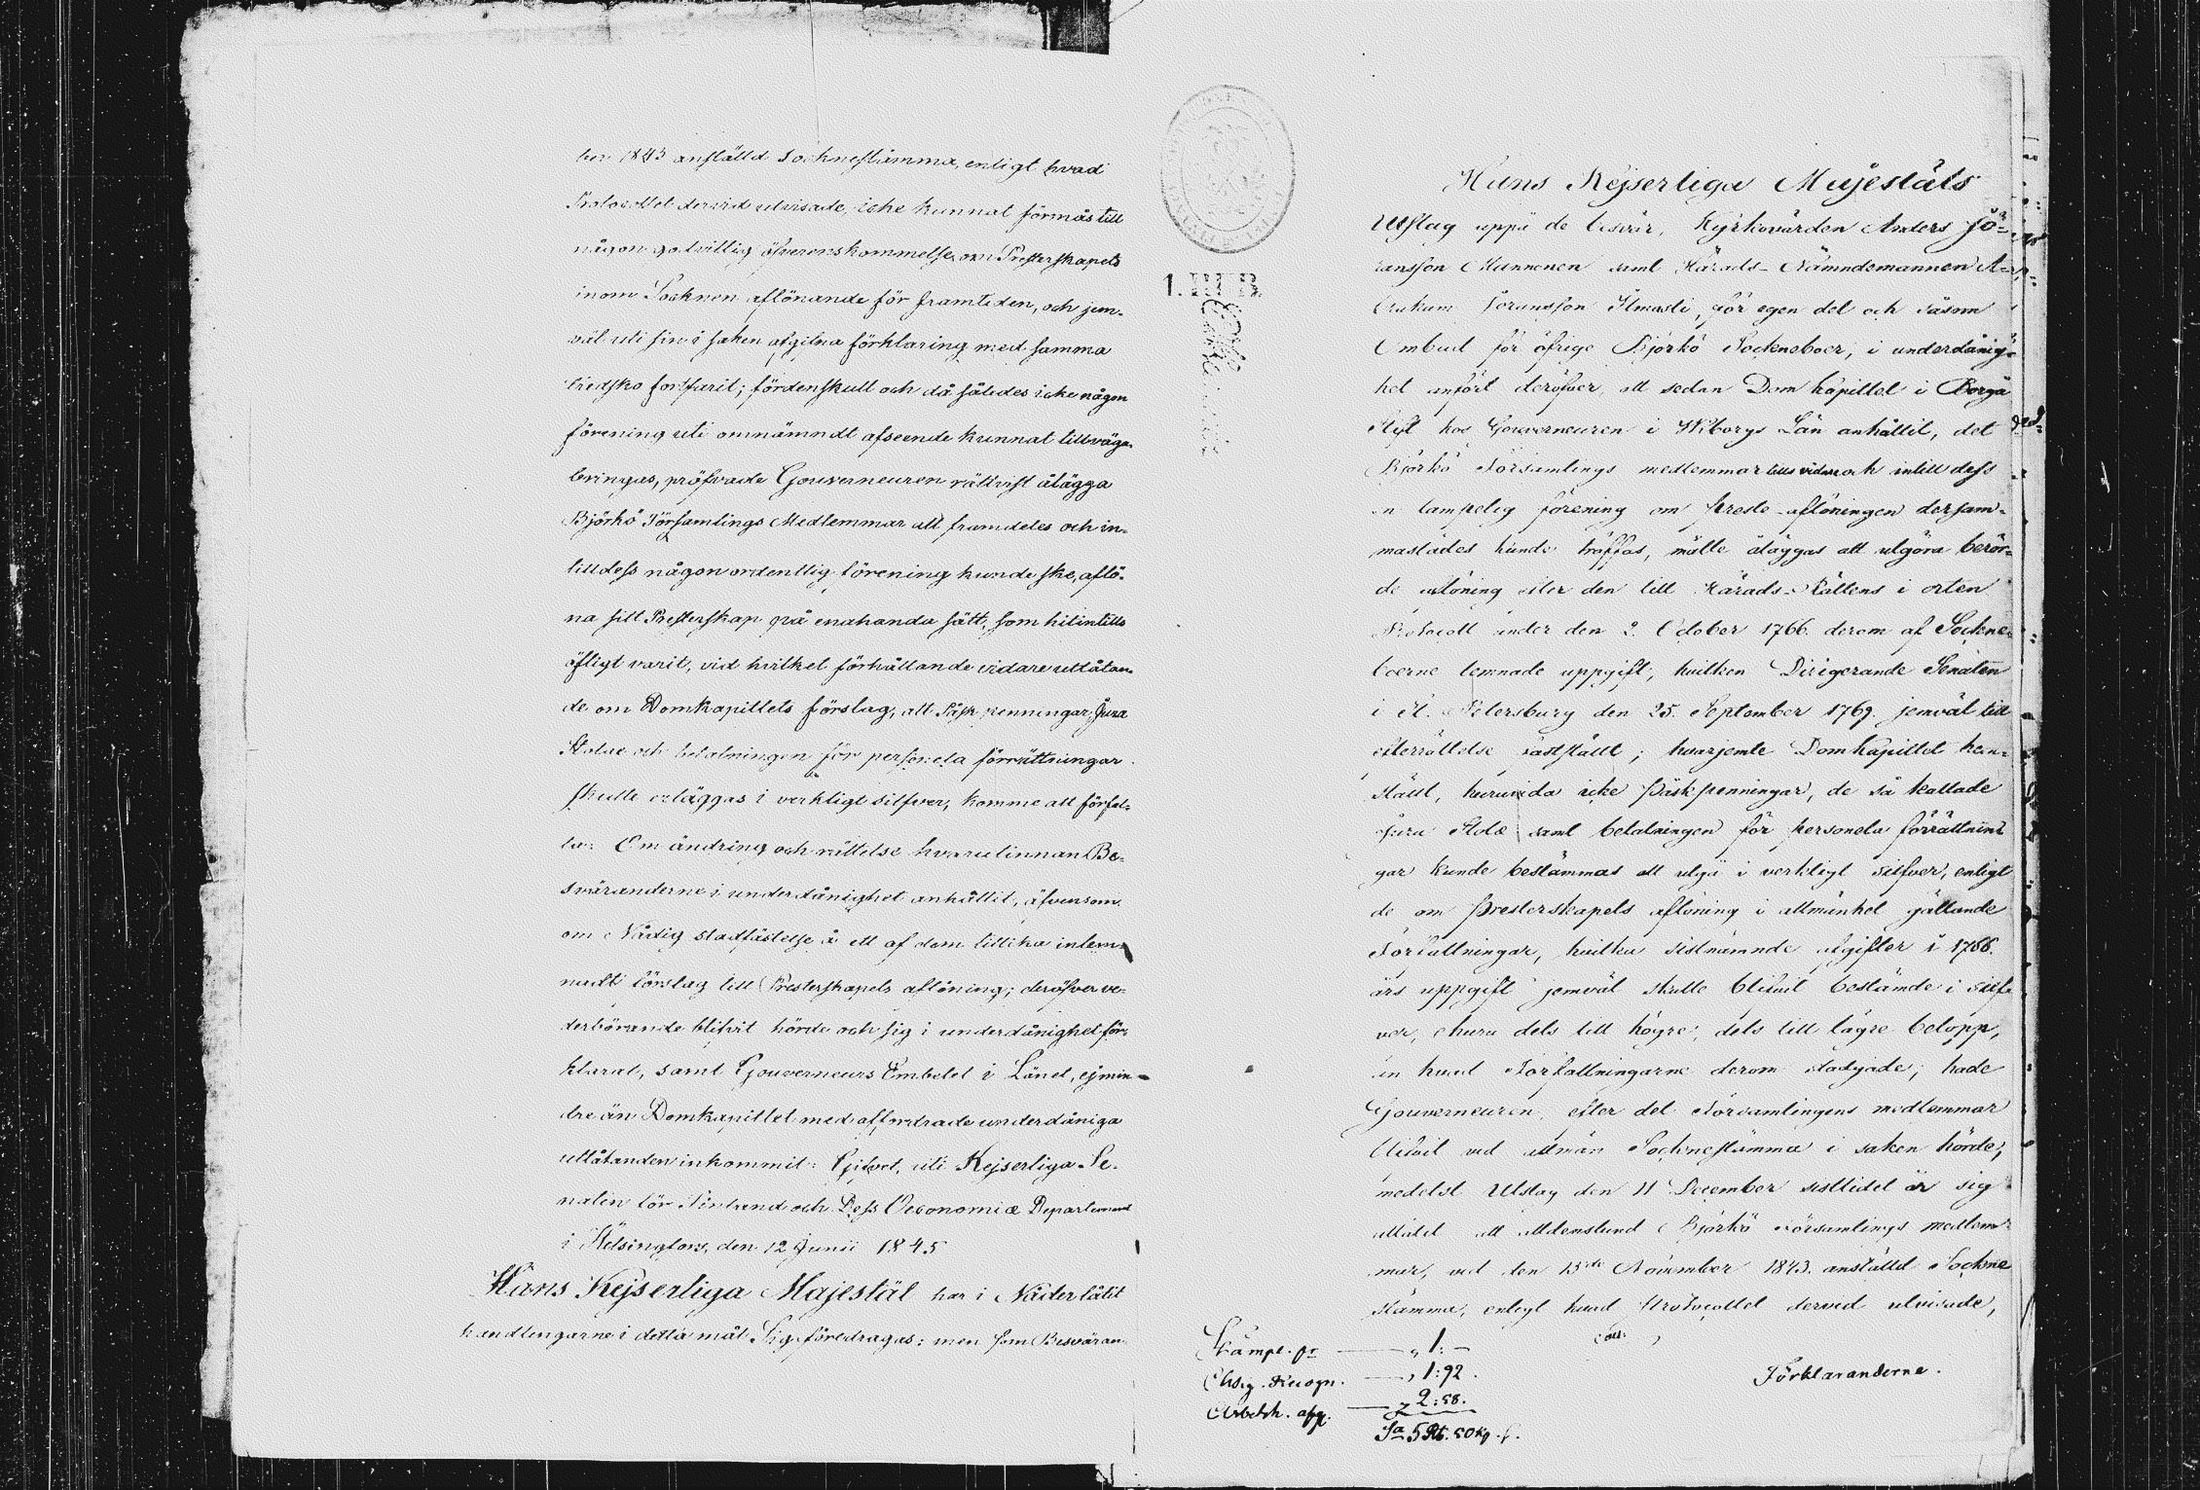 ber 1843 anställd Sochnestämma, enligt hvad
Protocollet dervid utvisade, icke kunnat förmås till
någon godvillig öfverenskommelse om Presterskapets
inom Socknen aflönande för framtiden, och jem-
väl uti sin i saken afgifna förklaring med samma
tredsko fortfarit; fördenskull och då således icke någon
förening uti omnämndt afseende kunnat tillväga-
bringas, pröfvade Gouverneuren rättvist ålägga
Björkö Församlings Medlemmar att framdeles och in-
tilldess någon ordentlig förening kunde ske, aflö-
na sitt Presterskap på enahanda sätt, som hitintills
öfligt varit, vid hvilket förhållande vidare utlåtan-
de om Domkapitlets förslag, att Påsk penningar, Jura
Stolae och betalningen för personela förrättningar
skulle erläggas i verkligt silfver, komme att förfal-
la: Om ändring och rättelse hvarutinnan Be-
sväranderne i underdånighet anhållit, äfvensom
om Nådig stadfästelse å ett af dem tillika inlem-
nadt förslag till Presterskapets aflöning; deröfver ve-
derbörande blifvit hörde och sig i underdånighet för-
klarat, samt Gouverneurs Embetet i Länet, ej min-
dre än Domkapitlet med affordrade underdåniga
utlåtanden inkommit: Gifvet, uti Kejserliga Se-
naten för Finland och Dess Oeconomiæ Departement
i Helsingfors, den 12 Junii 1845
Hans Kejserliga Majestät har i Nåder låtit
handlingarne i detta mål Sig föredragas: men som Besväran-
Hans Kejserliga Majestäts
Utslag uppå de besvär, Kyrkovärden Anders Jö-
ransson Mannonen samt Härads-Nämndemannen A-
braham Göransson Ilmasti, för egen del och såsom
Ombud för öfrige Björkö Sockneboer, i underdånig-
het anfört deröfver, att sedan Domkapitlet i Borgå
Stift hos Gouverneuren i Wiborgs Län anhållit, det
Björkö Församlings medlemmar tills vidare och intill dess
en lämpelig förening om Preste-aflöningen dersam-
mastädes kunde träffas, måtte åläggas att utgöra berör-
de aflöning efter den till Härads-Rättens i orten
Protocoll under den 2. October 1766. derom af Sockne-
boerne lemnade uppgift, hvilken Dirigerande Senaten
i St. Petersburg den 25. September 1769. jemväl till
efterrättelse fastställt; hvarjemte Domkapitlet hem-
ställt, huruvida icke Påskpenningar, de så kallade
Jura Stolæ samt betalningen för personela förrättnin-
gar kunde bestämmas att utgå i verkligt silfver, enligt
de om Presterskapets aflöning i allmänhet gällande
Författningar, hvilka sistnämnde afgifter i 1766.
års uppgift jemväl skulle blifvit bestämde i silf-
ver, ehuru dels till högre, dels till lägre belopp,
än hvad Författningarne derom stadgade; hade
Gouverneuren, efter det Församlingens medlemmar
blifvit vid allmän Sochnestämma i saken hörde,
medelst Utslag den 11 December sistlidet år sig
utlåtit att alldenstund Björkö Församlings medlem-
mar, vid den 15de November 1843. anställd Sockne
stämma, enligt hvad Protocollet dervid utvisade,
Förklaranderne.
Stämpl. pr — „ 1: —
Chsig. Recogn. — „ 1:92.
Arbetsh. afg. — „ 2:58.
Sa 5 Rb. 50 kp. s.